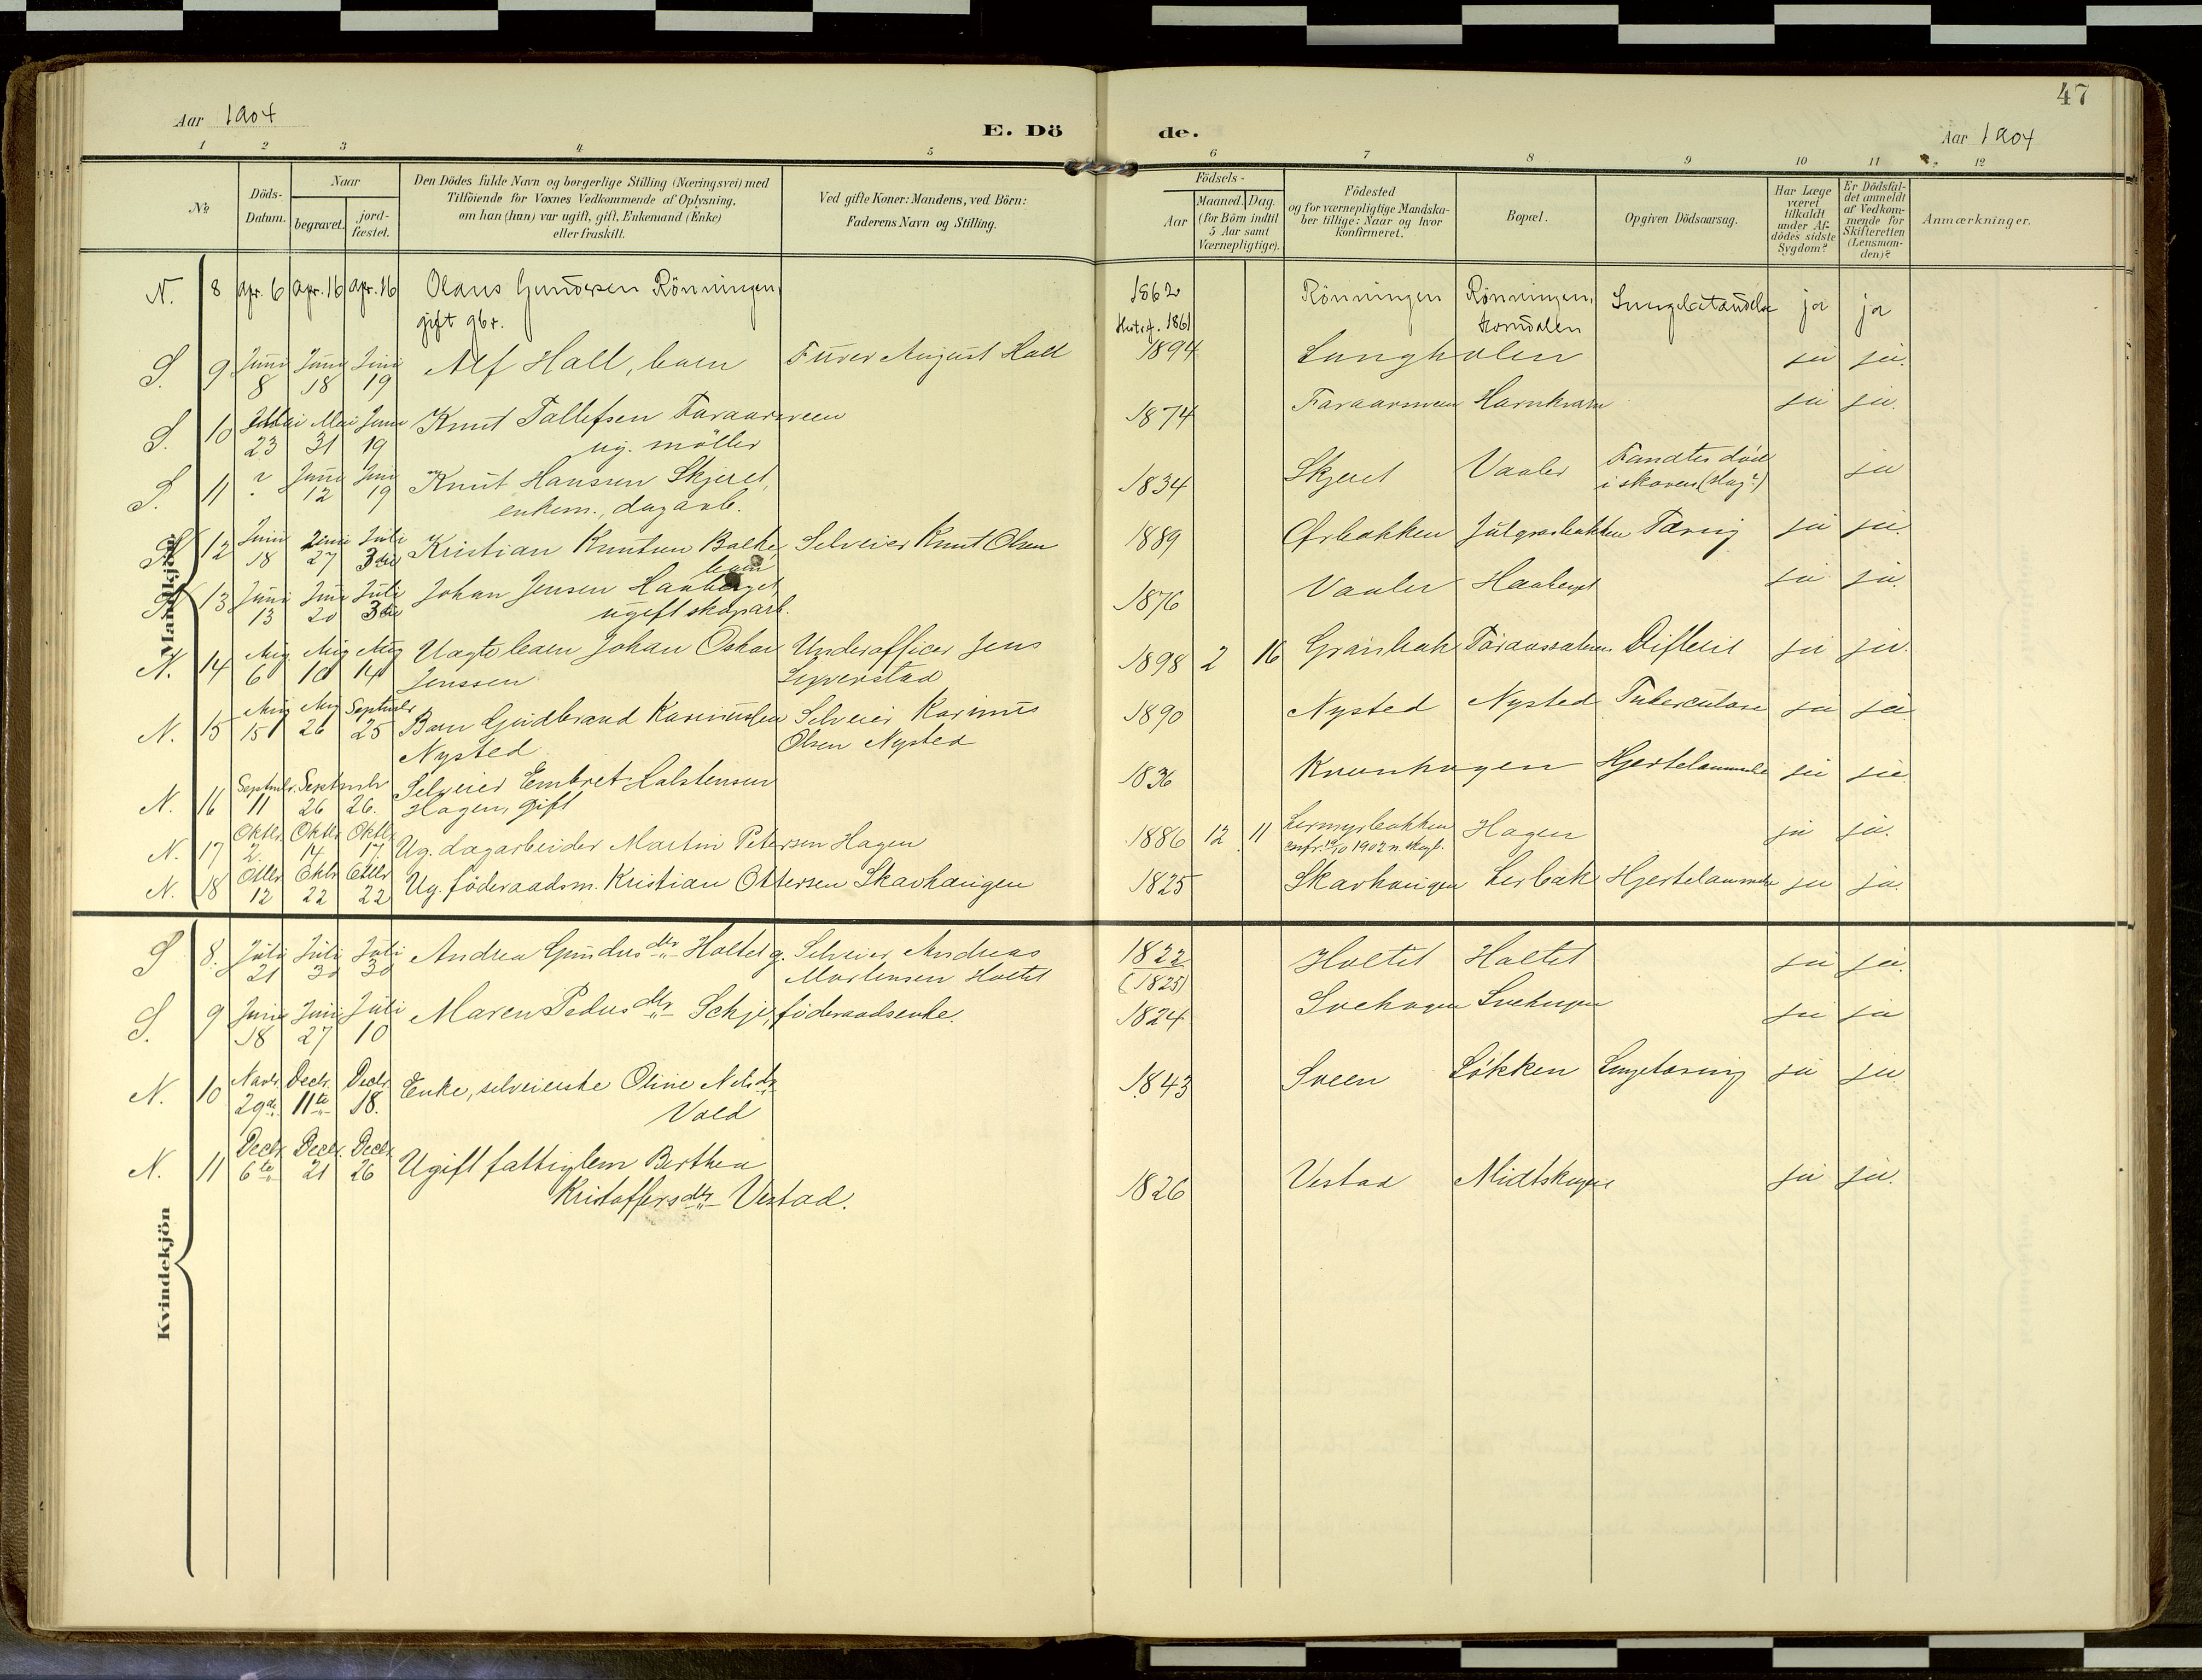 47
Aar 1904
E. Dö de.
Aar 1904
1 2 3 4 5 6 7 8 9 10 11 12
No
Döds-
Datum.
Naar
begravet.
jord-
fæstet.
Den Dödes fulde Navn og borgerlige Stilling (Næringsvei) med
Tilföiende for Voxnes Vedkommende af Oplysning,
om han (hun) var ugift, gift, Enkemand (Enke)
eller fraskilt.
Ved gifte Koner: Mandens, ved Börn:
Faderens Navn og Stilling.
Födsels-
Aar
Maaned. Dag.
(for Börn indtil
5 Aar samt
Værnepligtige).
Födested
og for værnepligtige Mandska-
ber tillige: Naar og hvor
konfirmeret.
Bopæl.
Opgiven Dödsaarsag.
Har Læge
været
tilkaldt
under Af-
dödes sidste
Sygdom?
Er Dödsfal-
det anmeldt
af Vedkom-
mende for
Skifteretten
(Lensman-
den)?
Anmærkninger.
Mandkjön
N. 8 Apr. 6 Apr. 16 Apr. 16 Olaus Gundersen Rönningen, 1862 Rönningen Rönningen, Lungebetændelse ja ja
gift gbr. 1861
S. 9 Juni 8 Juni 18 Juni 19 Alf Hall, barn Furer August Hall 1894 Lungholen ja ja.
S. 10 Mai 23 Mai 31 Juni 19 Knut Tallefsen 1874 ja ja.
ug. møller
S. 11 ? Juni 12 Juni 19 Knut Hansen Skjeret, 1834 Skjeret Vaaler Fandtes död ja
enkem., dagarb. i skoven (slag?)
12 Juni 18 Juni 27 Juli 3die Kristian Knutsen Bakke, Selveier Knut Olsen 1889 Ørbakken Tæring ja ja.
barn
13 Juni 13 Juni 20 Juli 3die Johan Jensen Haaberget, 1876 Vaaler Haaberget ja ja.
ugift skogarb.
N. 14 Aug. 6 Aug 10 Aug 14 Uægte barn Johan Oskar Underofficer Jens 1898 2 16 Granbak Difterit ja ja.
Jenssen
N. 15 Aug 15 Aug 26 Septmbr 25 Barn Gudbrand Karinusen Selveier Karinus 1890 Nysted Nysted Tuberculose ja ja
Nysted Olsen Nysted
N. 16 Septmbr. 11 Septmbr 26 26. Selveier Embret Halstensen 1836 Kvenhagen Hjertelammelse ja ja
Hagen, gift
N. 17 Oktbr. 2. Oktbr 14 Oktbr 17. Ug. dagarbeider Martin Petersen Hagen 1886 12 11 Lermyrbakken Hagen ja ja.
confr. 19/10 1902
N. 18 Oktbr 12 Oktbr 22 Oktbr 22 Ug. föderaadsm. Kristian Ottersen Skavhaugen 1825 Skavhaugen Lerbak Hjertelammelse ja ja.
Kvindekjön
S 8. Juli 21 Juli 30 Juli 30 Andrea Gundersdtr Holtet g. Selveier Andreas 1822 Holtet Holtet ja ja.
Mortensen Holtet (1825)
S. 9 Juni 18 Juni 27 Juli 10 Maren Pedersdtr föderaadsenke. 1824 Svehagen Svehagen ja ja
N. 10 Novbr. 29de Decbr. 11te Decbr. 18. Enke, selveierske Oline Nilsdtr 1843 Sveen Løkken Lungetæring ja ja
Vold
N. 11 Decbr 6te Decbr. 21 Decbr 26 Ugift fattiglem Berthea 1826 Vestad Midtskogen ja ja.
Kristoffersdtr Vestad.